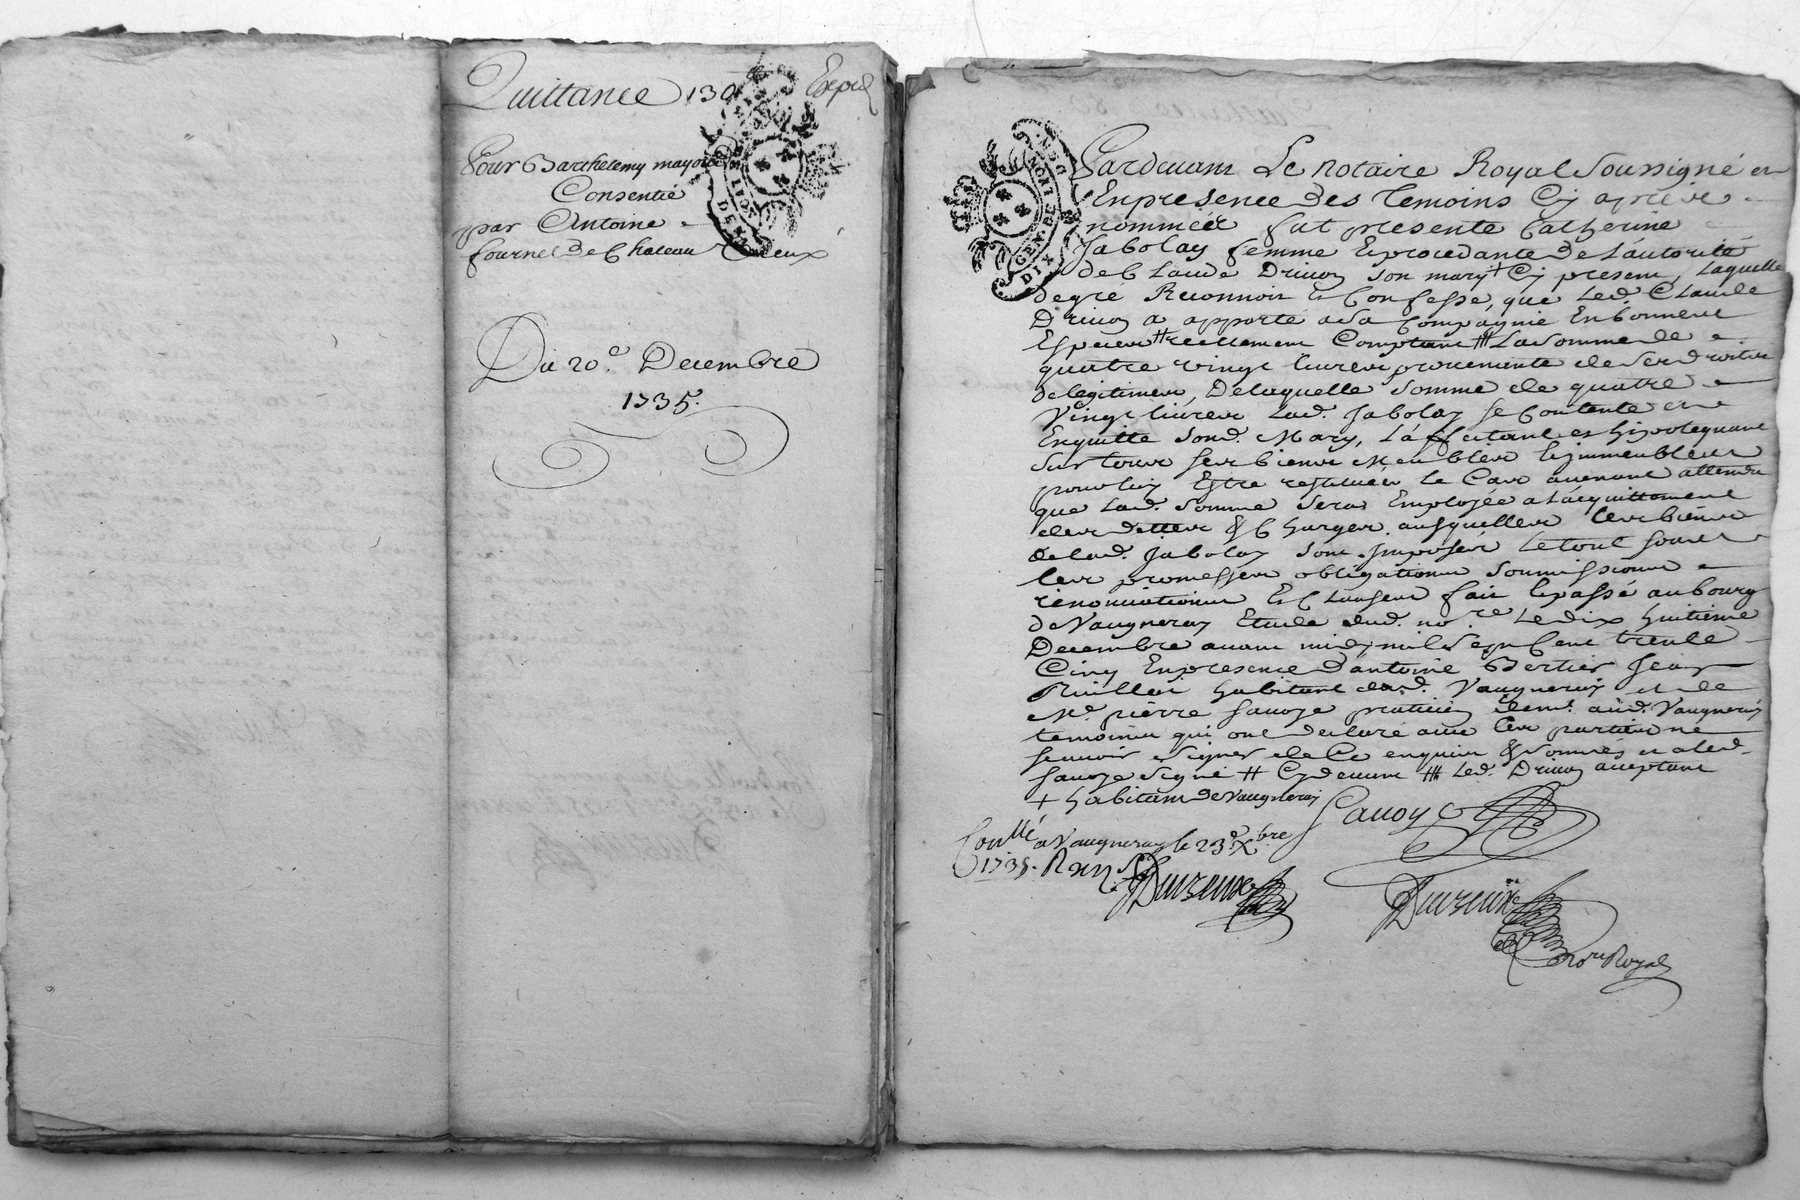 Quittance 130# Expié
Pour Barthelemy mayoud
Consentie
par Antoine
fournel De Chateau vieux
Du 20e. Decembre
1735.
Pardevant Le notaire Royal Soussigné et
En presence des Temoins Cy apres
nommées fut presente Catherine
Jabolay femme Et procedante de L'autorité
de Claude Drivon son mary + Cy present, Laquelle
de gré Reconnoit Et Confesse, que Led. Claude
Drivon a apporté a Sa Compagnie En bonnes
Especes # reellement Comptant ## La Somme de
quatre vingt livres provenante de Ses droits
de legitimes, De laquelle Somme de quatre
Vingt livres Lad. Jabolay Se Contente et
En quitte Sond. Mary, L'affectant et hipotequant
Sur tous Ses biens Meubles & immeubles
pour luy Estre restituées le Cas avenant attendu
que Lad. Somme Sera Employée a L'acquittement
des dettes & Charges ausquelles les biens
de lad. Jabolay Sont Imposés Le tout Sous
les promesses obligations Soumissions
renonciations Et Clauses fait & passé au bourg
de Vaugneray Etude dud. nore. Le dix huitieme
Decembre avant midy mil Sept Cent trente
Cinq En presence d'antoine Bertier Jean
habitant dud. Vaugneray et de
Me. pierre Savoye praticien demt. aud. Vaugneray
temoins qui ont declaré avec les parties ne
Scavoir Signer de Ce enquis & Sommés et a led.
Savoye Signé # Cy devant ## Led. Drivon acceptant
+ habitant de Vaugneray
Savoye
Conllé a Vaugneray le 23e. Xbre
1735.
GEN. DE LION
DIX DEN.
Nore. Royal